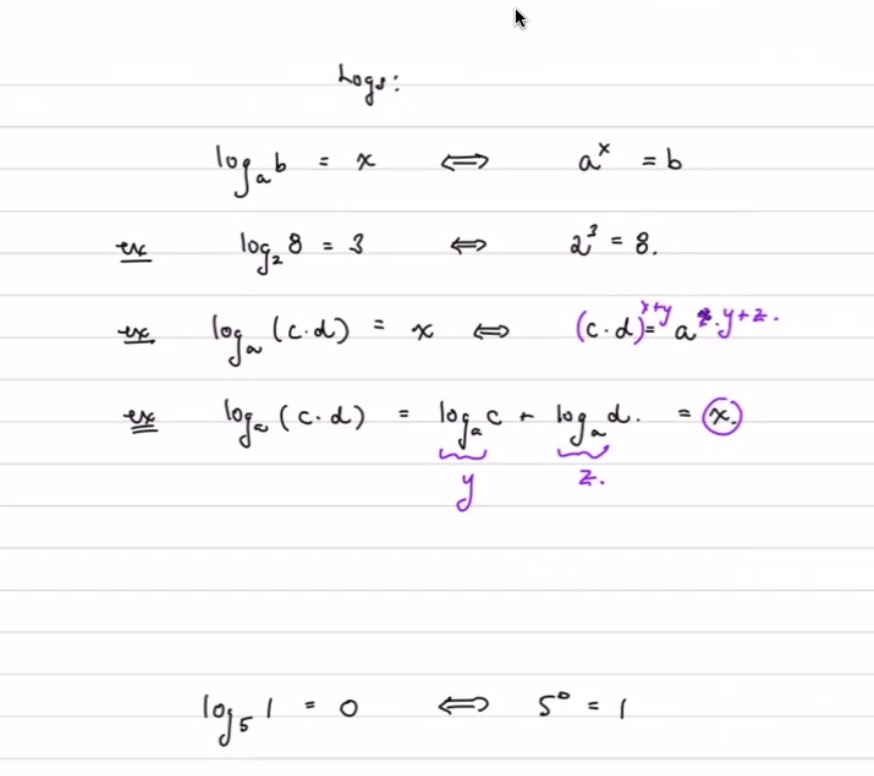 Logs:
logₐb = x ⟺ aˣ = b
ex log₂8 = 3 ⟺ 2³ = 8.
ex logₐ(c·d) = x ⟺ (c·d)ˣ⁺ʸ = a y+z.
ex logₐ(c·d) = logₐc + logₐd. = x.
y z.
log₅1 = 0 ⟺ 5⁰ = 1